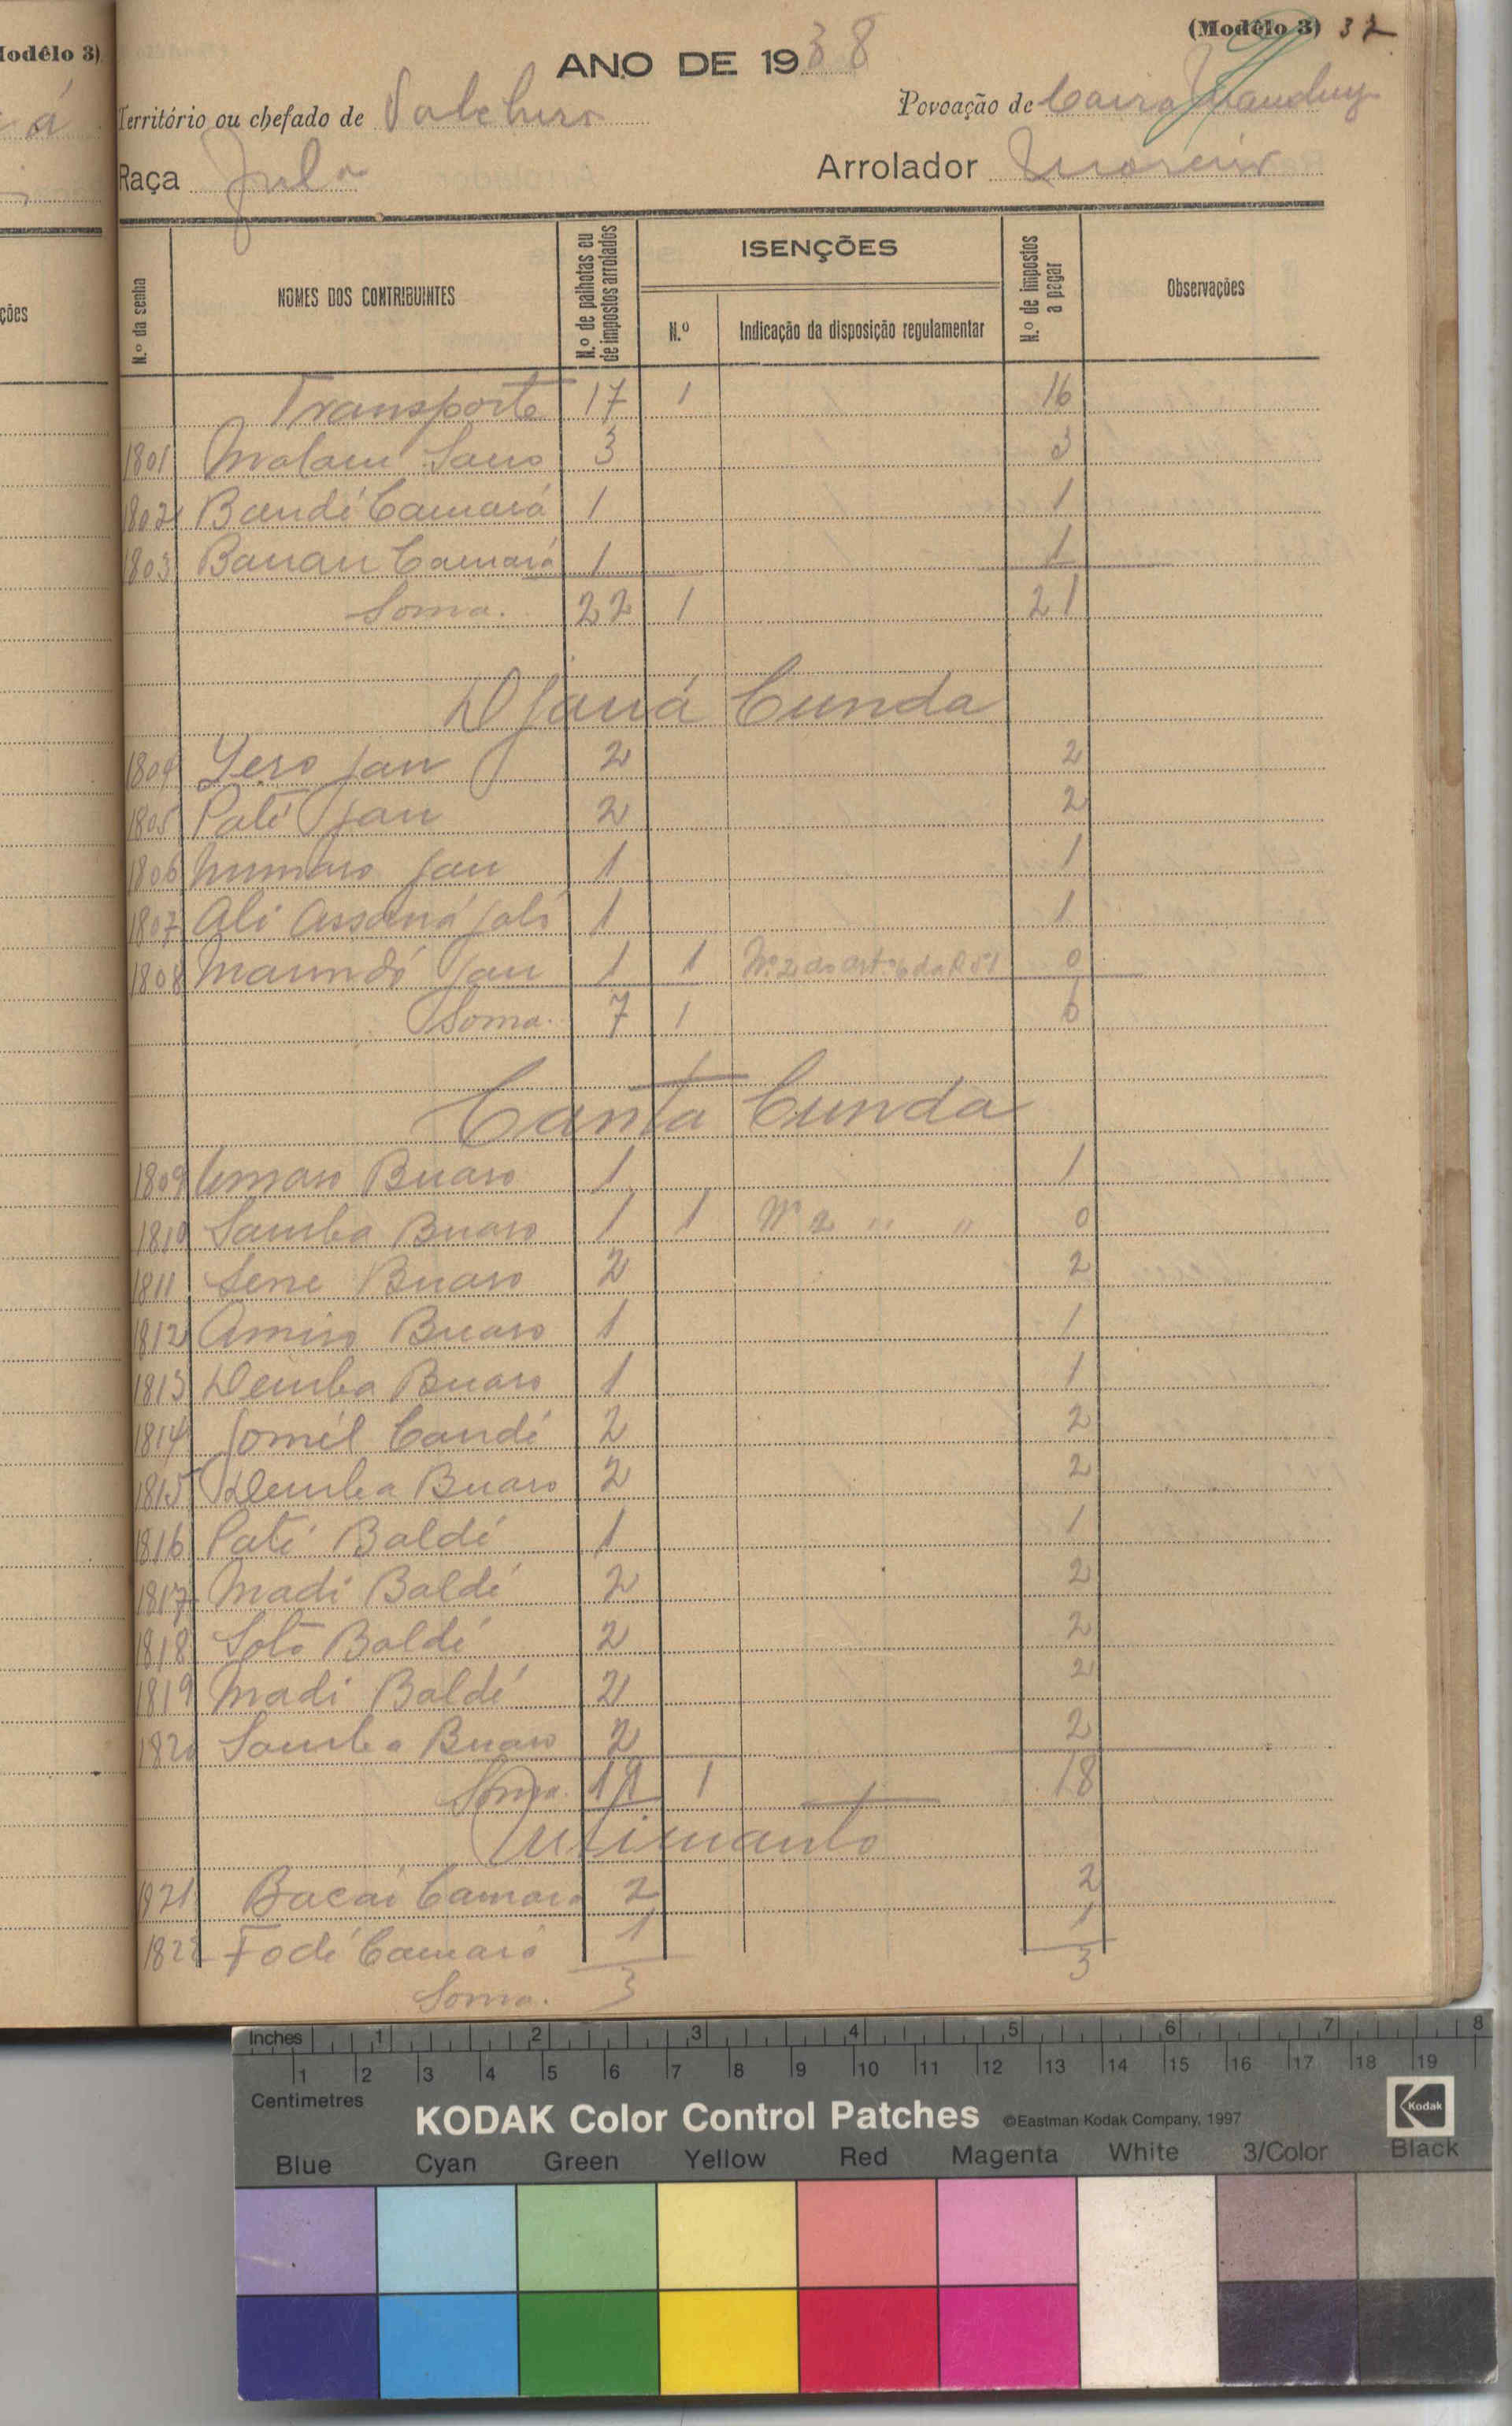 (Modêlo 3) 32
odêlo 3)
ANO DE 1938
Território ou chefado de
Povoação de Caira
á
Raça Fula
Arrolador Moreira
ções
N.º da senha
NOMES DOS CONTRIBUINTES
N.º de palhotas eu de impostos arrolados
ISENÇÕES
N.º
Indicação da disposição regulamentar
N.º de impostos a pagar
Observações
Transporte 17 1 16
1801 Malam Sano 3 3
1802 Bandé Camará 1 1
1803 Banan Camará 1 1
Soma. 22 1 21
Djaná Cunda
1804 Yero Jau 2 2
1805 Paté Jau 2 2
1806 Jau 1 1
1807 Ali Assaná 1 1
1808 Jau 1 1 Nº 2 do artº 6 do R.51 0
Soma. 7 1 6
Canta Cunda
1809 Umaro Buaro 1 1
1810 Samba Buaro 1 1 Nº 2 " " 0
1811 Sene Buaro 2 2
1812 Amiro Buaro 1 1
1813 Demba Buaro 1 1
1814 Jomél Candé 2 2
1815 Demba Buaro 2 2
1816 Paté Baldé 1 1
1817 Madi Baldé 2 2
1818 Soto Baldé 2 2
1819 Madi Baldé 2 2
1820 Samba Buaro 2 2
Soma. 19 1 18
1821 Bacai Camara 2 2
1822 Fodé Camará 1 1
Soma. 3 3
Inches 1 2 3 4 5 6 7 8
1 2 3 4 5 6 7 8 9 10 11 12 13 14 15 16 17 18 19
Centimetres
KODAK Color Control Patches ©Eastman Kodak Company, 1997 Kodak
Blue Cyan Green Yellow Red Magenta White 3/Color Black